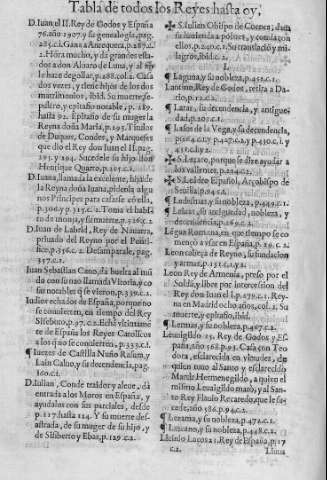 Tabla de todos los Reyes hasta oy.
D. Iuan el II. Rey de Godos y España
76. año 1907. y su genealogia, pag.
285. c. 1. Gana a Antequera, p. 287. c.
2. Hōra mucho, y dà grandes esta-
dos a don Aluaro de Luna, y al fin
le haze degollar, p. 288. col. 2. Casa
dos vezes, y tiene hijos de los dos
matrimonios, ibid. Su muerte, se-
pulcro, y epitafio notable, p. 289.
hasta 92. Epitafio de su muger la
Reyna doña Maria, p. 293. Titulos
de Duques, Condes, y Marqueses
que dio el Rey don Iuan el II. pag.
293. y 294. Sucedele su hijo don
Henrique Quarto, p. 295. c. 1.
D. Iuana, llamada la excelente, hija de
la Reyna doña Iuana, pidenla algu-
nos Principes para casarse cō ella,
p. 304. y 315. c. 1. Toma el habi-
to de monja, y su muerte, p. 336. c. 2.
D. Iuan de Labrid, Rey de Nauarra,
priuado del Reyno por el Ponti-
fice, p. 356. c. 2. Desamparale, pag.
357. c. 2.
Iuan Sebastian Cano, dà buelta al mū
do con su nao llamada Vitoria, y co
sas notables q̄ se vieron, p. 339. c. 2.
Iudios echados de España, porque no
se conuierten, en tiempo del Rey
Sisebuto, p. 97. c. 2. Echā veinte vezes
de España los Reyes Catolicos
a los q̄ no se conuierten, p. 333. c. 1.
¶ Iuezes de Castilla Nuño Rasura, y
Lain Caluo, y su decendencia, pag.
160. c. 1.
D. Iulian, Conde traidor y aleue, dà
entrada a los Moros en España, y
ayudalos con sus parciales, desde
p. 117. hasta 124. Y su muerte de-
sastrada, de su muger de su hijo, y
de Sisiberto y Ebas, p. 129. c. 2.
S. Iulian Obispo de Cuenca, daua
su hazienda a pobres, y comia con
ellos, p. 240. c. 2. Su translacion y mi-
lagros, ibid. c. 2.
L
¶ Laguna, y su nobleza, p. 452. c. 1.
Lantino, Rey de Godos, retira a Da-
rio, p. 12. c. 1.
¶ Lara, su decendencia, y antigue-
dad, p. 201. c. 1.
¶ Lasos de la Vega, y su decendencia,
p. 164. c. 1. y 427. c. 2. y 430. c. 1. y
431. c. 1. y 2.
S. Lazaro, porque se dize ayudar a
los vallientes, p. 224. c. 1.
¶ S. Leandro Español, Arçobispo de
Seuilla, p. 94. c. 1.
¶ Ledesmas, y su nobleza, p. 549. c. 1.
¶ Leiuas, su antiguedad, nobleza, y
decendencia, p. 269. c. 2.
Lēgua Romana, en que tiempo se co-
mençò a vsar en España, p. 29. c. 2.
Leon cabeça de Reyno, su fundacion
y arma, p. 151. c. 1. y 2.
Leon Rey de Armenia, preso por el
Soldā, y libre por intercession del
Rey don Iuan el I. p. 279. c. 1. Rey-
na en Madrid ocho años, col. 2. Su
muerte, y epitafio, ibid.
¶ Lermas, y su nobleza, p. 487. c. 2.
Leuuigildo 15. Rey de Godos y Es-
paña, año 568. p. 91. Casa con Teo
dora, esclarecida en virtudes, de
quien tuuo al Santo y esclarecido
Martir Hermenegildo, a quien el
mismo Leuuigildo matò, y al San-
to Rey Flauio Recaredo, que le su-
cede, año 586. p. 94. c. 1.
¶ Lezama, y su nobleza, p. 472. c. 1.
¶ Lezcano, y su nobleza, p. 448. c. 2.
Rey de España, p. 17
c. 2.